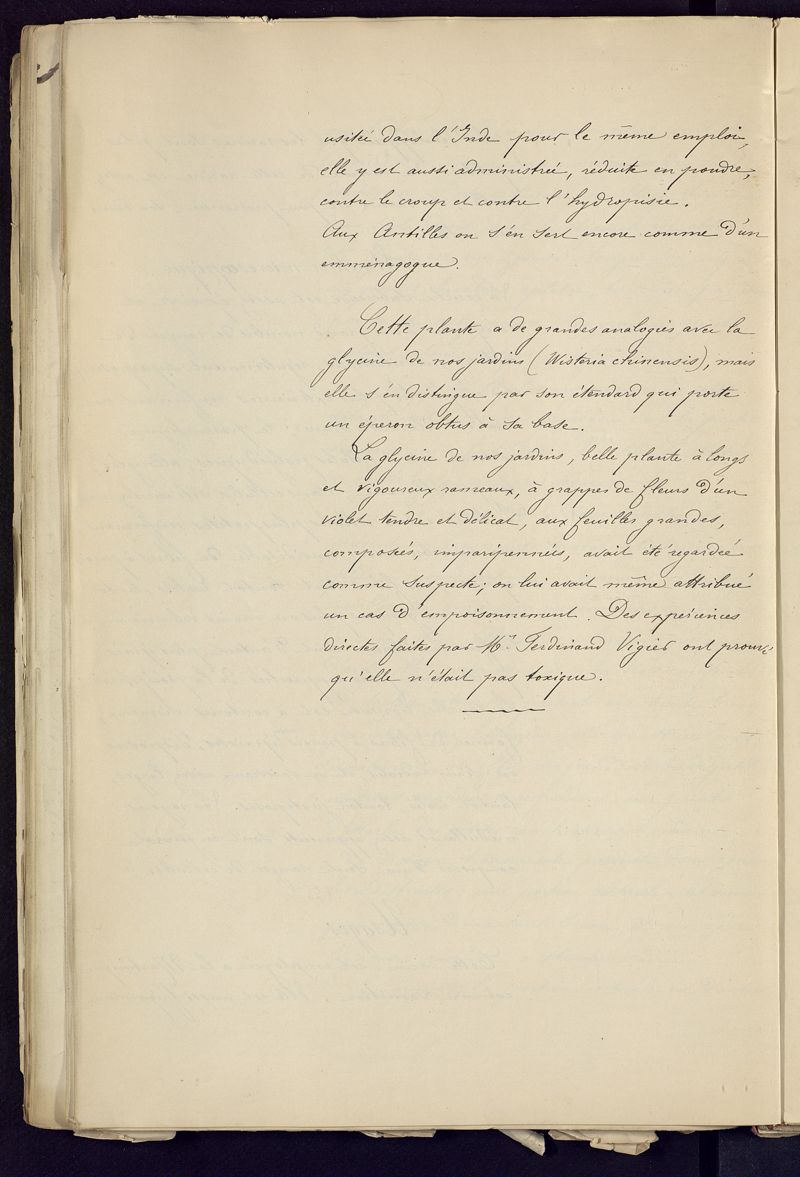 usitée dans l'Inde pour le même emploi,
elle y est aussi administrée, réduite en poudre,
contre le croup et contre l'hydropisie.
Aux Antilles on s'en sert encore comme d'un
emménagogue.
Cette plante a de grandes analogies avec la
glycine de nos jardins (Wisteria chinensis), mais
elle s'en distingue par son étendard qui porte
un éperon obtus à sa base.
La glycine de nos jardins, belle plante à longs
et vigoureux rameaux, à grappes de fleurs d'un
violet tendre et délicat, aux feuilles grandes,
composées, imparipennées, avait été regardée
comme suspecte; on lui avait même attribué
un cas d'empoisonnement. Des expériences
directes faites par Mr. Ferdinand Vigier ont prouvé
qu'elle n'était pas toxique.